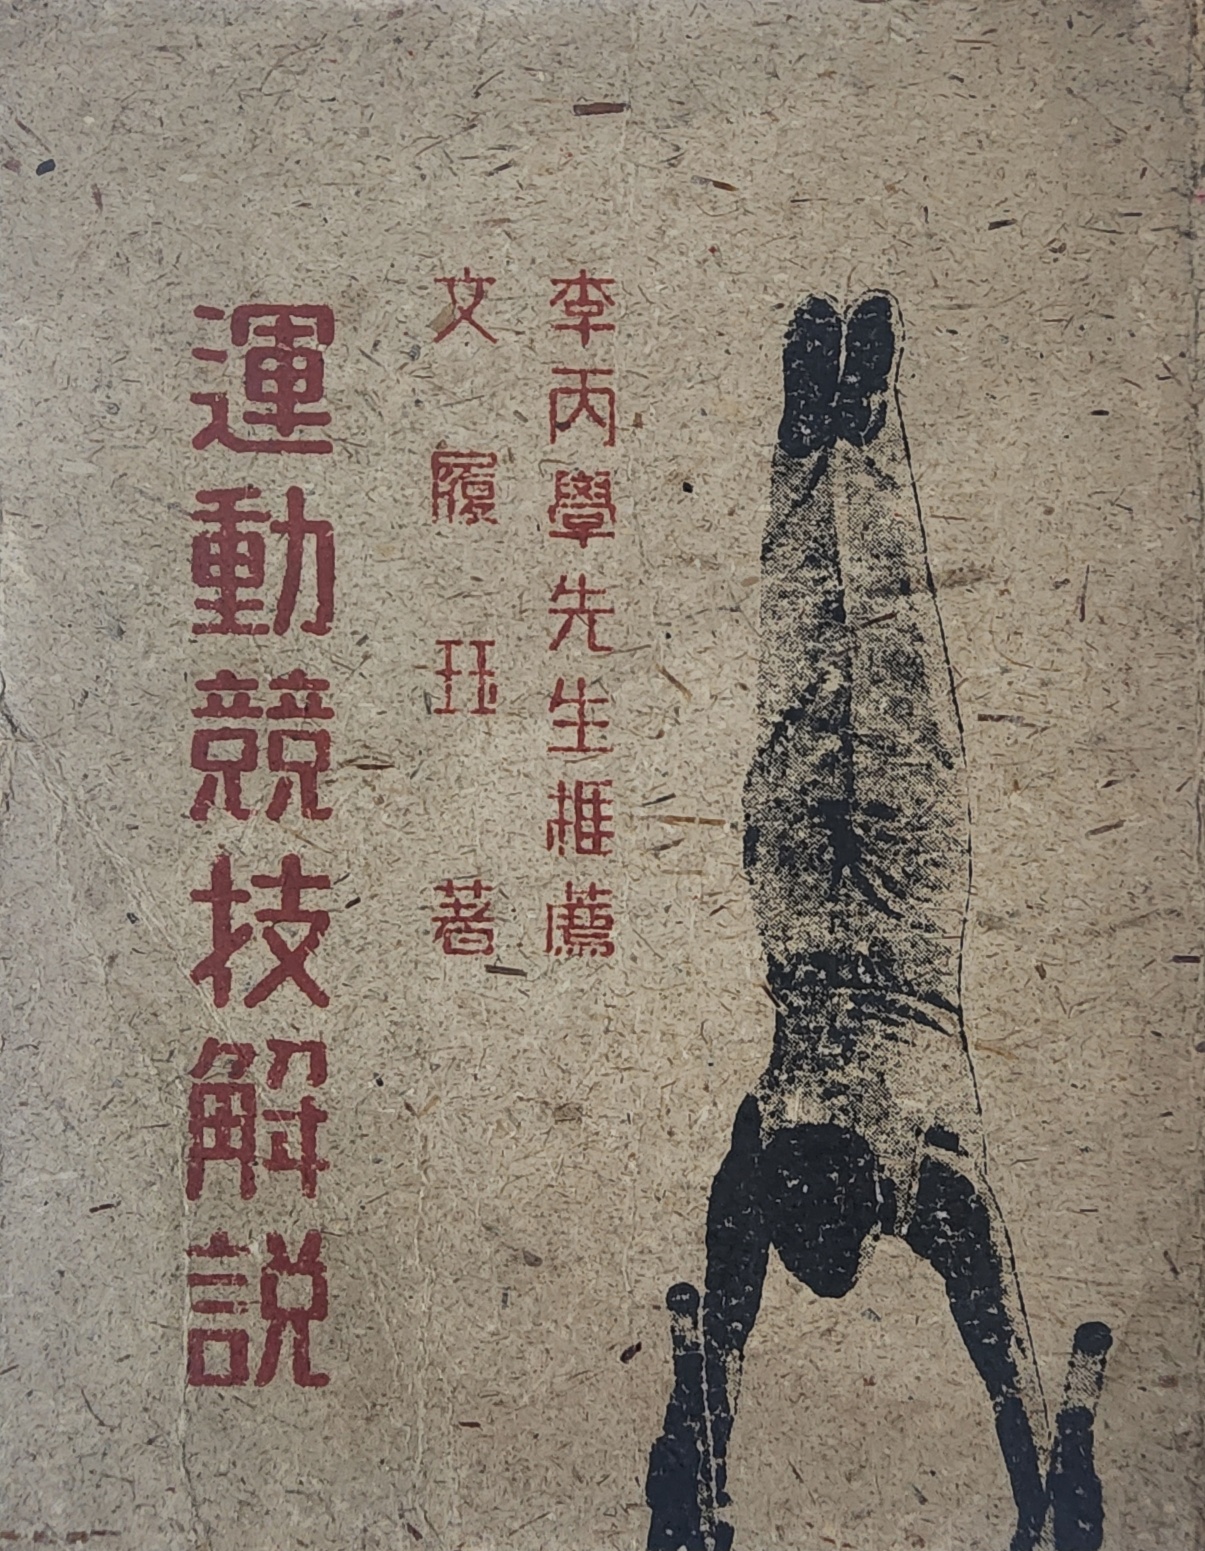 李丙學先生推薦
文履珏著
運動競技解説